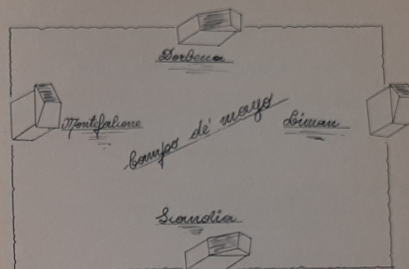 Dorbena
Montefalione
campo dé mayo
Liman
Scandia